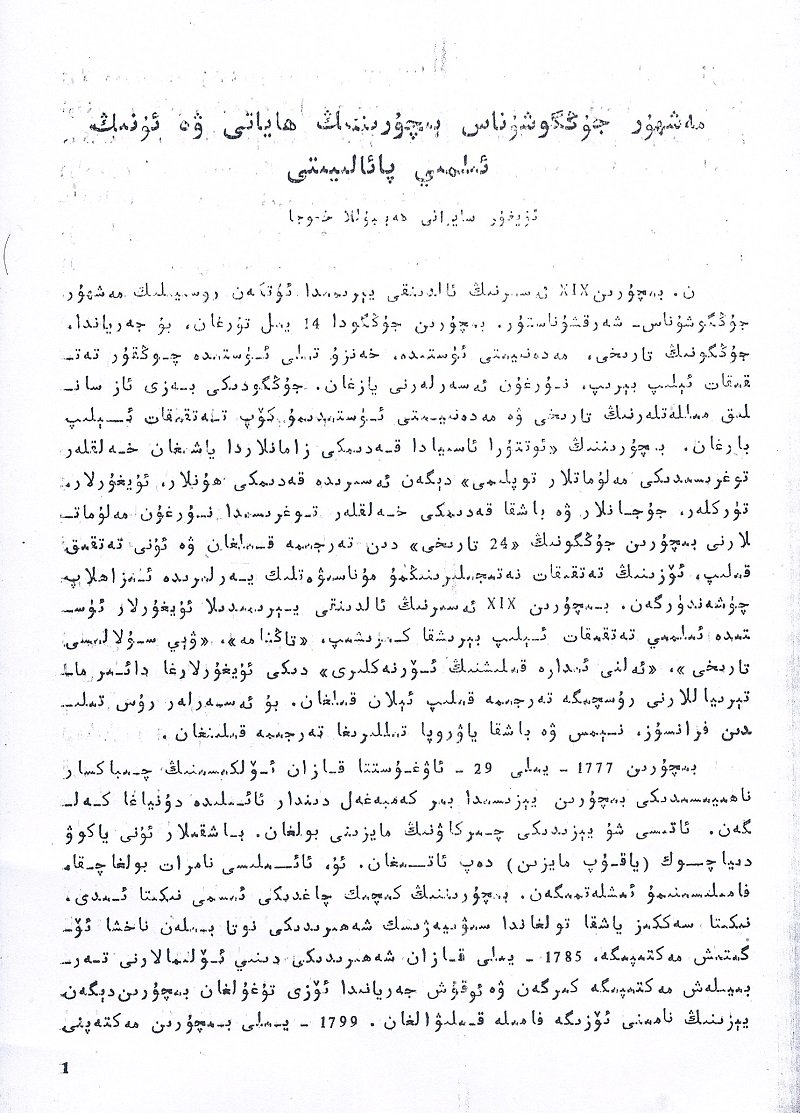 مەشھۇر جۇڭگوشۇناس بىچۇرىننىڭ ھاياتى ۋە ئۇنىڭ
ئىلمىي پائالىيىتى
ئۇيغۇر سايرانى ھەبىبۇللا خوجا
ن. بىچۇرىن XIX ئەسىرنىڭ ئالدىنقى يېرىمىدا ئۆتكەن روسىيىلىك مەشھۇر
جۇڭگوشۇناس- شەرقشۇناستۇر. بىچۇرىن جۇڭگودا 14 يىل تۇرغان، بۇ جەرياندا،
جۇڭگونىڭ تارىخى، مەدەنىيىتى ئۈستىدە، خەنزۇ تىلى ئۈستىدە چوڭقۇر تەتـ
قىقات ئېلىپ بېرىپ، نۇرغۇن ئەسەرلەرنى يازغان. جۇڭگودىكى بەزى ئاز سانـ
لىق مىللەتلەرنىڭ تارىخى ۋە مەدەنىيىتى ئۈستىدىمۇ كۆپ تەتقىقات ئېلىپ
بارغان. بىچۇرىننىڭ «ئوتتۇرا ئاسىيادا قەدىمكى زامانلاردا ياشىغان خەلقلەر
توغرىسىدىكى مەلۇماتلار توپلىمى» دېگەن ئەسىرىدە قەدىمكى ھۇنلار، ئۇيغۇرلار،
تۈركلەر، جۇجانلار ۋە باشقا قەدىمكى خەلقلەر توغرىسىدا نۇرغۇن مەلۇماتـ
لارنى بىچۇرىن جۇڭگونىڭ «24 تارىخى» دىن تەرجىمە قىلغان ۋە ئۇنى تەتقىق
قىلىپ، ئۆزىنىڭ تەتقىقات نەتىجىلىرىنىڭمۇ مۇناسىۋەتلىك يەرلىرىدە ئىزاھلاپ
چۈشەندۈرگەن. بىچۇرىن XIX ئەسىرنىڭ ئالدىنقى يېرىمىدىلا ئۇيغۇرلار ئۈسـ
تىدە ئىلمىي تەتقىقات ئېلىپ بېرىشقا كىرىشىپ، «تاڭنامە»، «ۋېي سۇلالىسى
تارىخى»، «ئەلنى ئىدارە قىلىشنىڭ ئۆرنەكلىرى» دىكى ئۇيغۇرلارغا دائىر ماـ
تېرىياللارنى رۇسچىگە تەرجىمە قىلىپ ئېلان قىلغان. بۇ ئەسەرلەر رۇس تىلىـ
دىن فرانسۇز، نېمىس ۋە باشقا ياۋروپا تىللىرىغا تەرجىمە قىلىنغان.
بىچۇرىن 1777 - يىلى 29 - ئاۋغۇستتا قازان ئۆلكىسىنىڭ چىباكسار
ناھىيىسىدىكى بىچۇرىن يېزىسىدا بىر كەمبەغەل دىندار ئائىلىدە دۇنياغا كەلـ
گەن. ئاتىسى شۇ يېزىدىكى چىركاۋنىڭ مايزىنى بولغان. باشقىلار ئۇنى ياكوۋ
دىياچوك (ياقۇپ مايزىن) دەپ ئاتىغان. ئۇ، ئائىلىسى نامرات بولغاچقا،
فامىلىسىنىمۇ ئىشلەتمىگەن. بىچۇرىننىڭ كىچىك چاغدىكى ئىسمى نىكىتا ئىدى.
نىكىتا سەككىز ياشقا تولغاندا سىۋىيەژىسك شەھىرىدىكى نوتا بىلەن ناخشا ئۆـ
گىتىش مەكتىپىگە، 1785 - يىلى قازان شەھىرىدىكى دىنىي ئۆلىمالارنى تەرـ
بىيىلەش مەكتىپىگە كىرگەن ۋە ئوقۇش جەريانىدا ئۆزى تۇغۇلغان بىچۇرىن دېگەن
يېزىنىڭ نامىنى ئۆزىگە فامىلە قىلىۋالغان. 1799 - يىلى بىچۇرىن مەكتەپنى
1